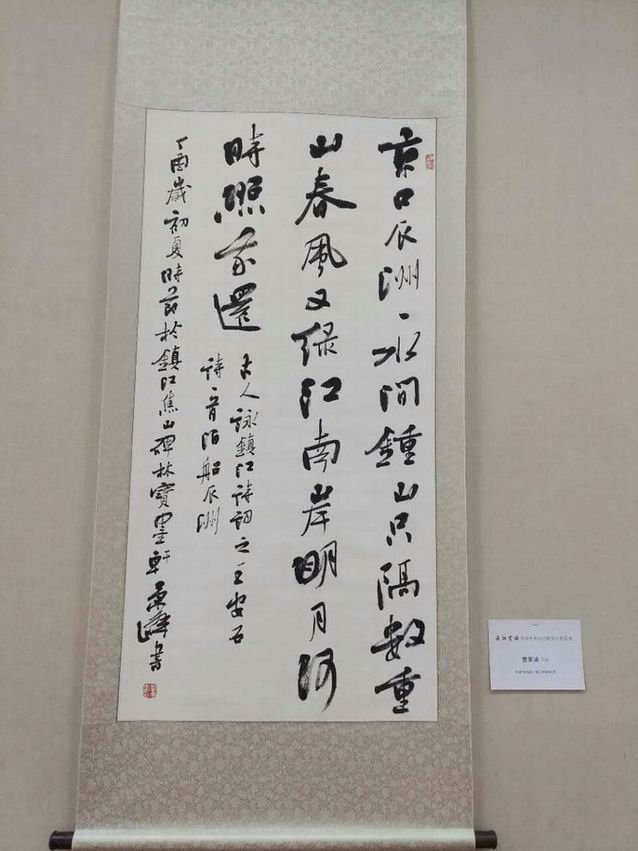 京口瓜洲一水間鍾山只隔數重
山春風又绿江南岸明月何
時照我還
古人詠鎮江詩詞之王安石
詩一首泊船瓜洲
丁酉歲初夏時節於鎮江焦山碑林寶墨軒書